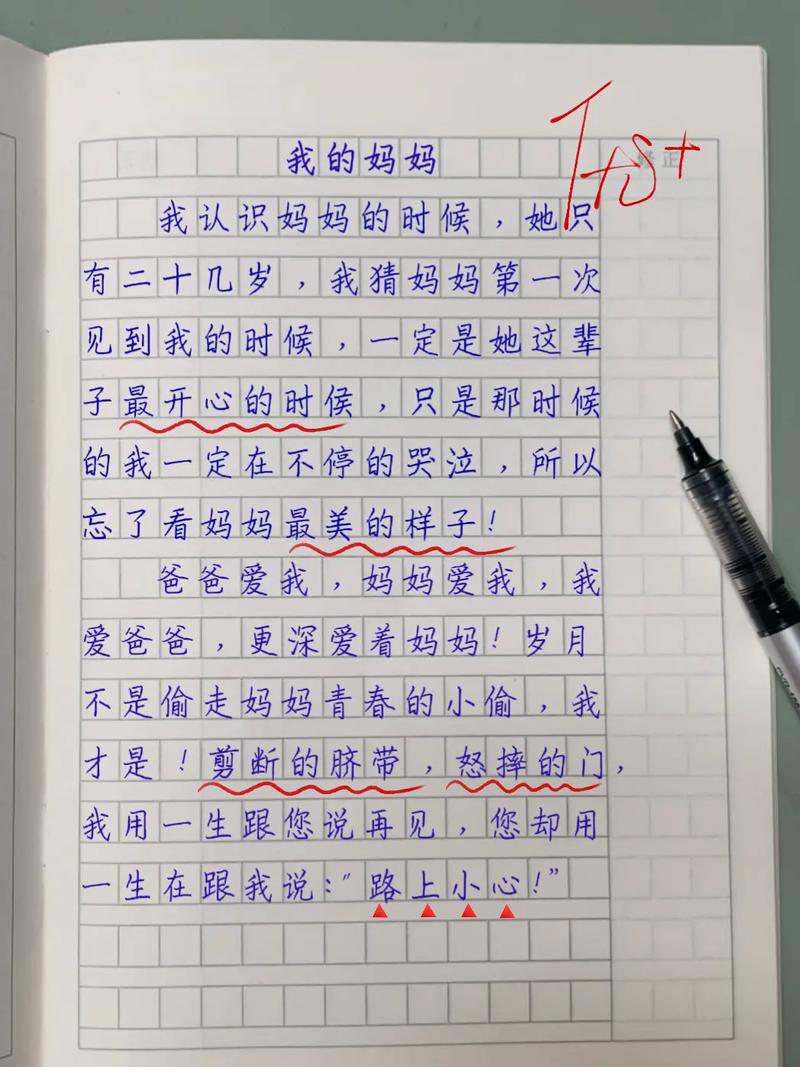 我的妈妈
我认识妈妈的时候，她只
有二十几岁，我猜妈妈第一次
见到我的时候，一定是她这辈
子最开心的时候，只是那时候
的我一定在不停的哭泣，所以
忘了看妈妈最美的样子！
爸爸爱我，妈妈爱我，我
爱爸爸，更深爱着妈妈！岁月
不是偷走妈妈青春的小偷，我
才是！剪断的脐带，怒摔的门，
我用一生跟您说再见，您却用
一生在跟我说：“路上小心！”
修正